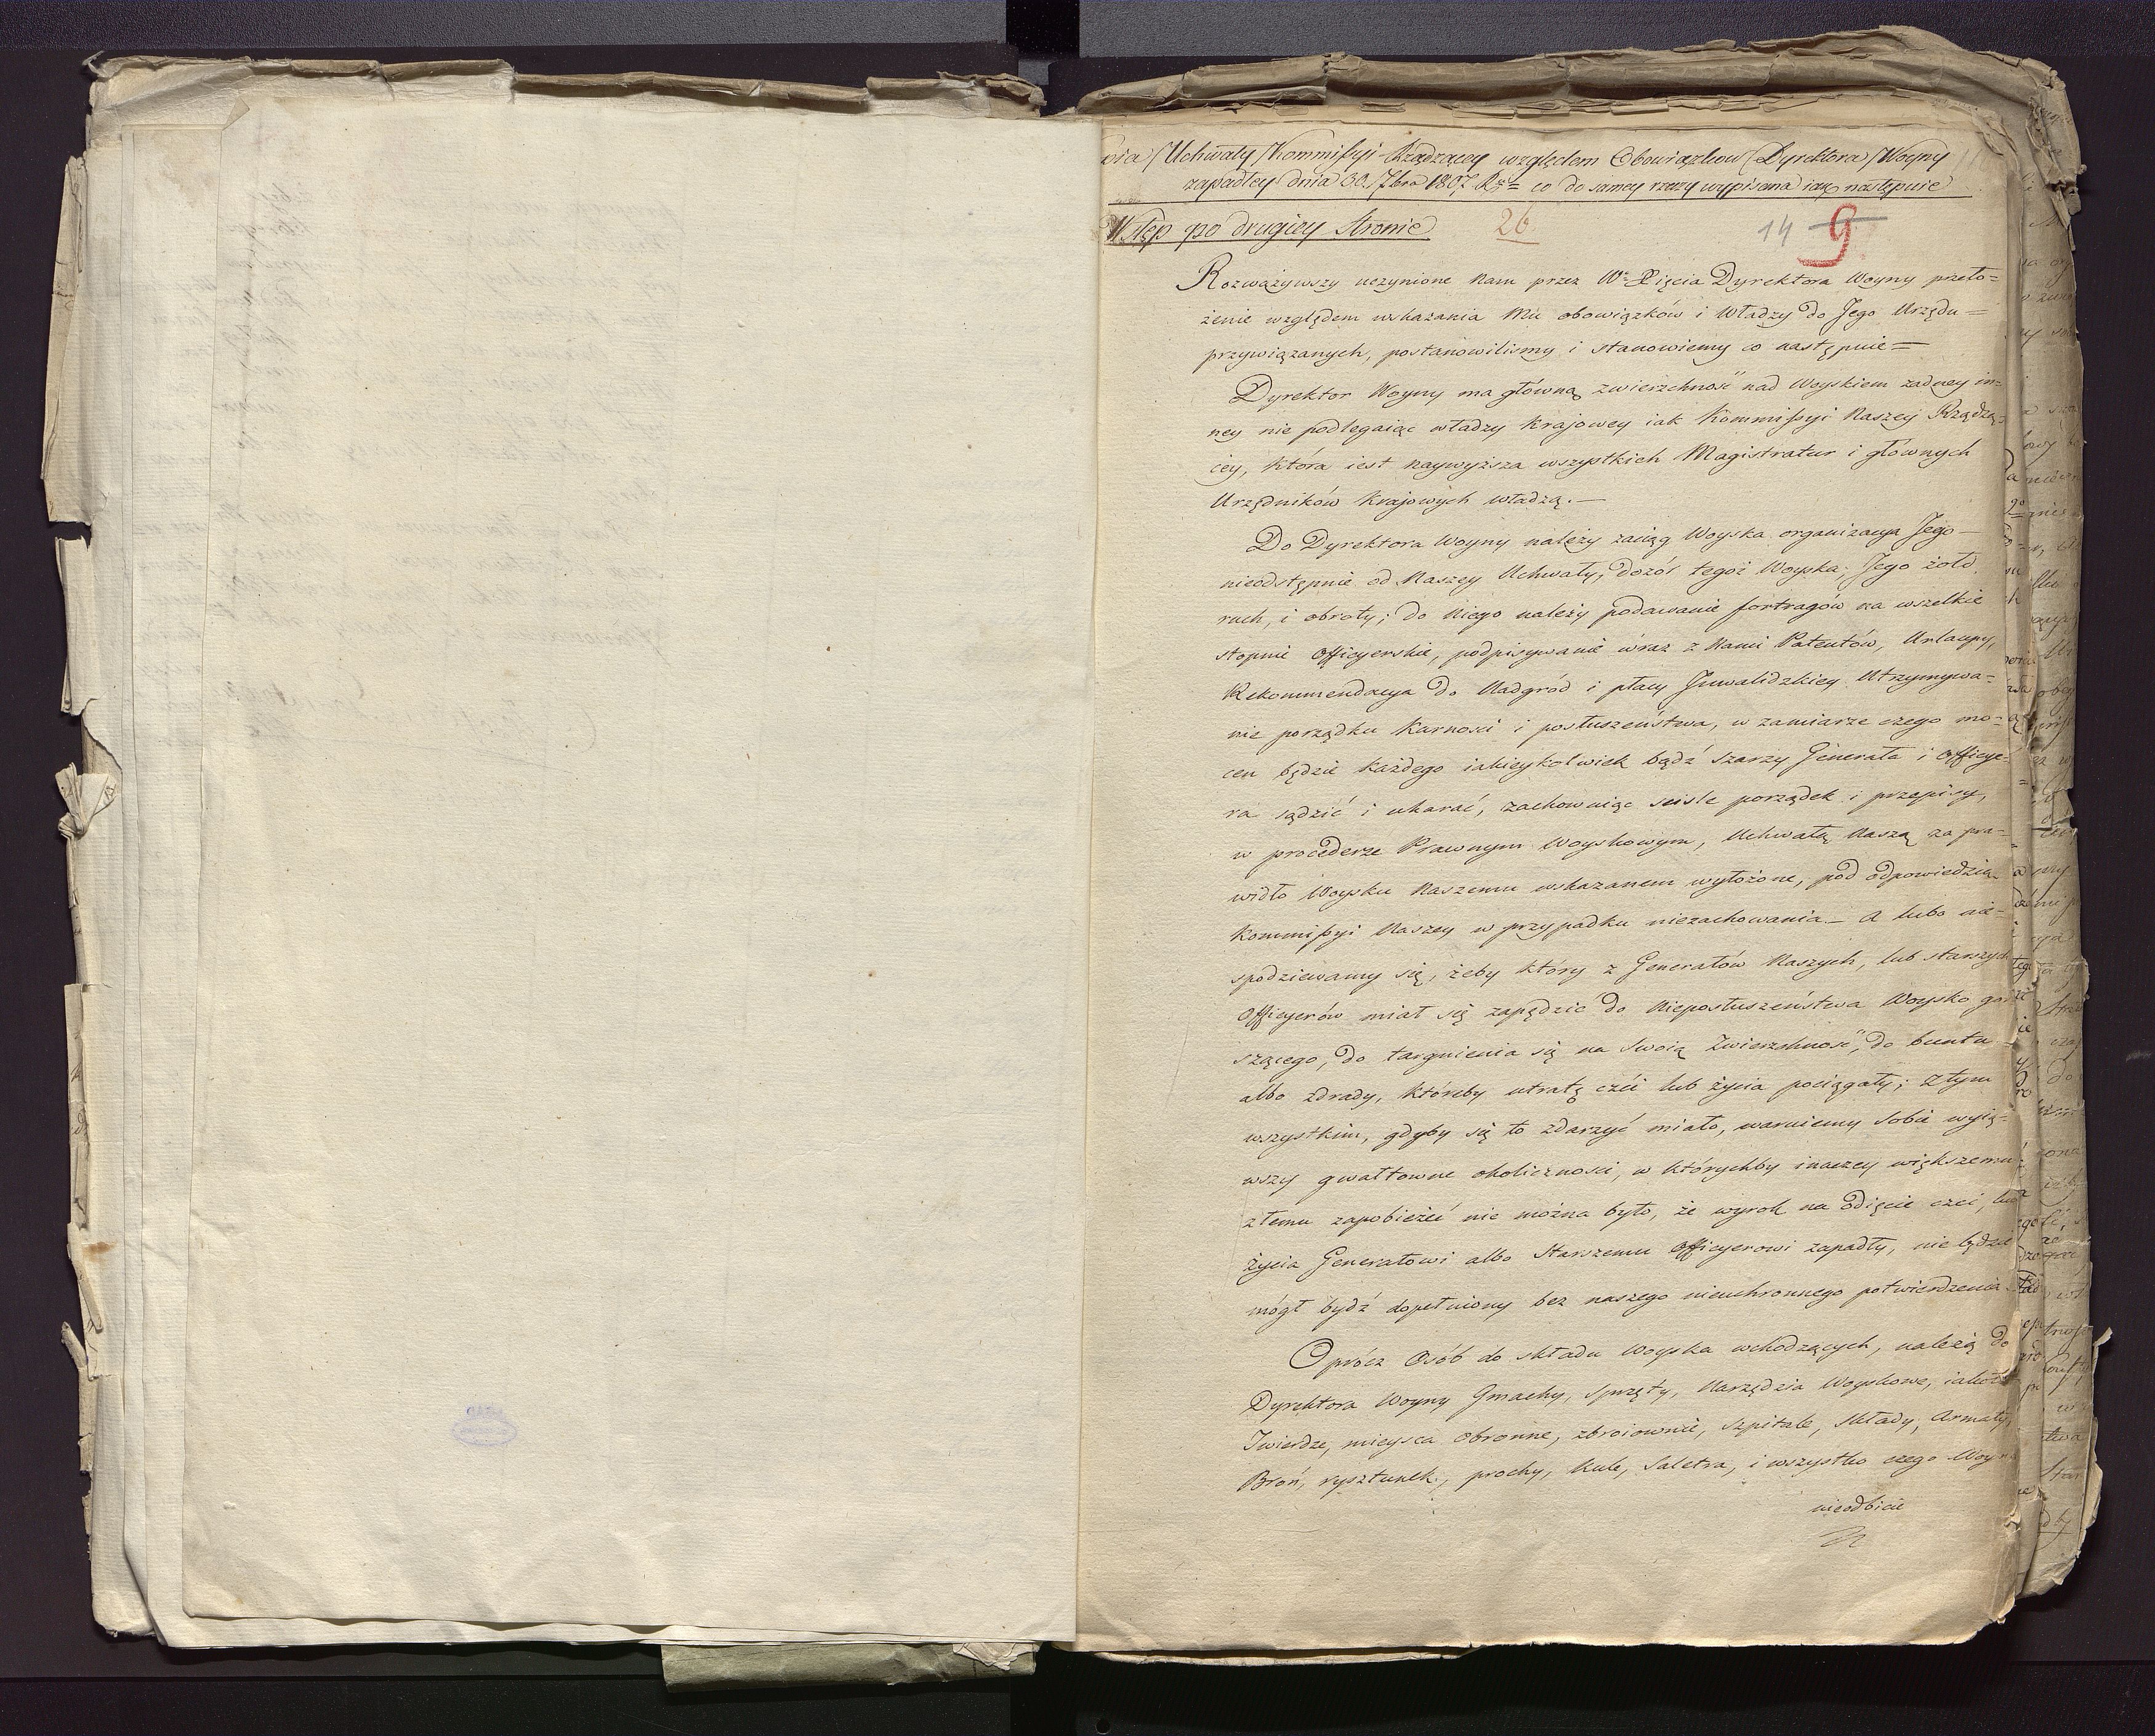 Uchwały Kommissyi Rządzącey względem Obowiązkow Dyrektora Woyny
zapadłey dnia 30. 7bra 1807 Rq= co do samey rzeczy wypisana iak następuie
Wstęp po drugiey Stronie 26 14 9
Rozważywszy uczynione Nam przez Wo Xięcia Dyrektora Woyny przeło=
żenie względem wskazania Mu obowiązków i Władzy do Jego Urzędu=
przywiązanych, postanowilismy i stanowiemy co następuie=
Dyrektor Woyny ma główną zwierzchność nad Woyskiem żadney in=
ney nie podlegaiąc władzy Krajowey iak Kommissyi Naszey Rządzą=
cey, która iest naywyższa wszystkich Magistratur i głównych
Urzędników Krajowych władzą.—
Do Dyrektora Woyny należy zaciąg Woyska organizacya Jego—
nieodstępnie od Naszey Uchwały, dozór tegoż Woyska, Jego żołd
ruch, i obroty; do Niego należy podawanie fortragów na wszelkie
stopnie Officyerskie, podpisywanie wraz z Nami Patentów, Urlaupy,
Rekommendacya do Nadgród i płacy Inwalidzkiey Utrzymywa=
nie porządku Karności i posłuszeństwa, w zamiarze czego mo=
cen będzie każdego iakieykolwiek bądź szarzy Generała i Officye=
ra sądzić i ukarać, zachowuiąc scisle porządek i przepisy,
w procederze Prawnym Woyskowym, Uchwałą Naszą za pra=
widło Woysku Naszemu wskazanem wyłożone, pod odpowiedzią
Kommissyi Naszey w przypadku niezachowania— A lubo nie=
spodziewamy się, żeby który z Generałów Naszych, lub starszych
Officyerów miał się zapędzić do Nieposłuszeństwa Woysko gor
szącego, do targnienia się na Swoią Zwierzchność, do buntu
albo zdrady, któreby utratę czci lub życia pociągały; z tym
wszystkim, gdyby się to zdarzyć miało, waruiemy Sobie wyią=
wszy gwałtowne okoliczności, w którychby inaczey większemu
złemu zapobieżeć nie można było, że wyrok na odięcie czci, lub
życia Generałowi albo Starszemu Officyerowi zapadły, nie będzie
mógł bydź dopełniony bez naszego nieuchronnego potwierdzenia
Oprócz Osób do składu Woyska wchodzących, należą do
Dyrektora Woyny Gmachy, Sprzęty, Narzędzia Woyskowe, iakoto
Twierdze, mieysca obronne, zbroiownie, Szpitale, Składy, Armaty,
Broń, rysztunek, prochy, Kule, Saletra, i wszystko czego Woyn
nieodbicie